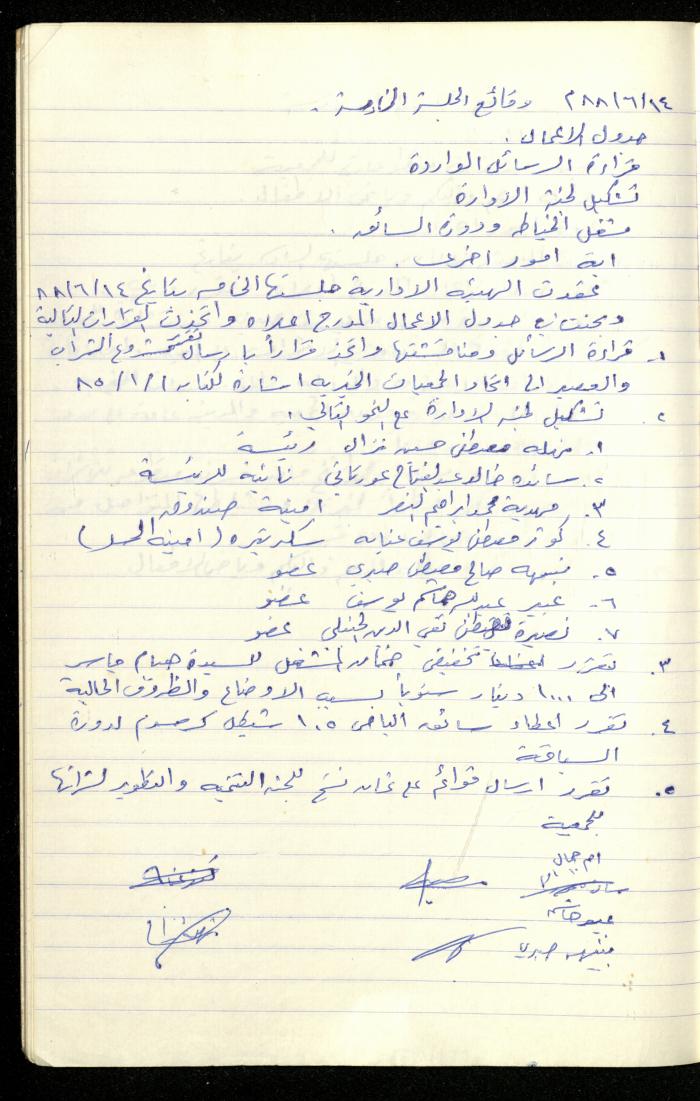 ٨٨/٦/١٤م وقائع الجلسة الخامسة .
جدول الاعمال .
قراءة الرسائل الواردة
تشكيل لجنة الادارة
مشغل الخياطه ودورة السائقه .
اية امور اخرى .
عقدت الهيئة الادارية جلستها الخامسه بتاريخ ٨٨/٦/١٤
وبحثت في جدول الاعمال المدرج اعلاه واتخذت القرارات التالية
١. قراءة الرسائل ومناقشتها واتخذ قراراً بارسال مشروع الشراب
والعصير الى اتحاد الجمعيات الخيريه اشارة لكتابه ٨٥/١/١
٢. تشكيل لجنة الادارة على النحو التالي :
١. نهله مصطفى حسين نزال رئيسة
٢. سائده خالد عبدالفتاح عورتاني نائبة للرئيسة
٣. مهدية محمد ابراهيم النصر امينة صندوق
٤. كوثر مصطفى يوسف عنايه سكرتيره (امينة السر)
٥. نبيهه صالح مصطفى صبري عضو
٦. عبير عبدالله هاشم يوسف عضو
٧. نصيرة مصطفى تقي الدين الحنبلي عضو
٣. تقرر تخفيض ضمان المشغل للسيدة هيام ياسر
الى ١٠٠٠ دينار سنوياً بسبب الاوضاع والظروف الحالية
٤. تقرر اعطاء سائق الباص ١٠٥ شيكل كرسوم لدورة
السياقة
٥. تقرر ارسال قوائم على ثمان نسخ للجنة التنميه والتطوير لشرائها
للجمعية
ام جمال
عبير هاشم
نبيهه صبري